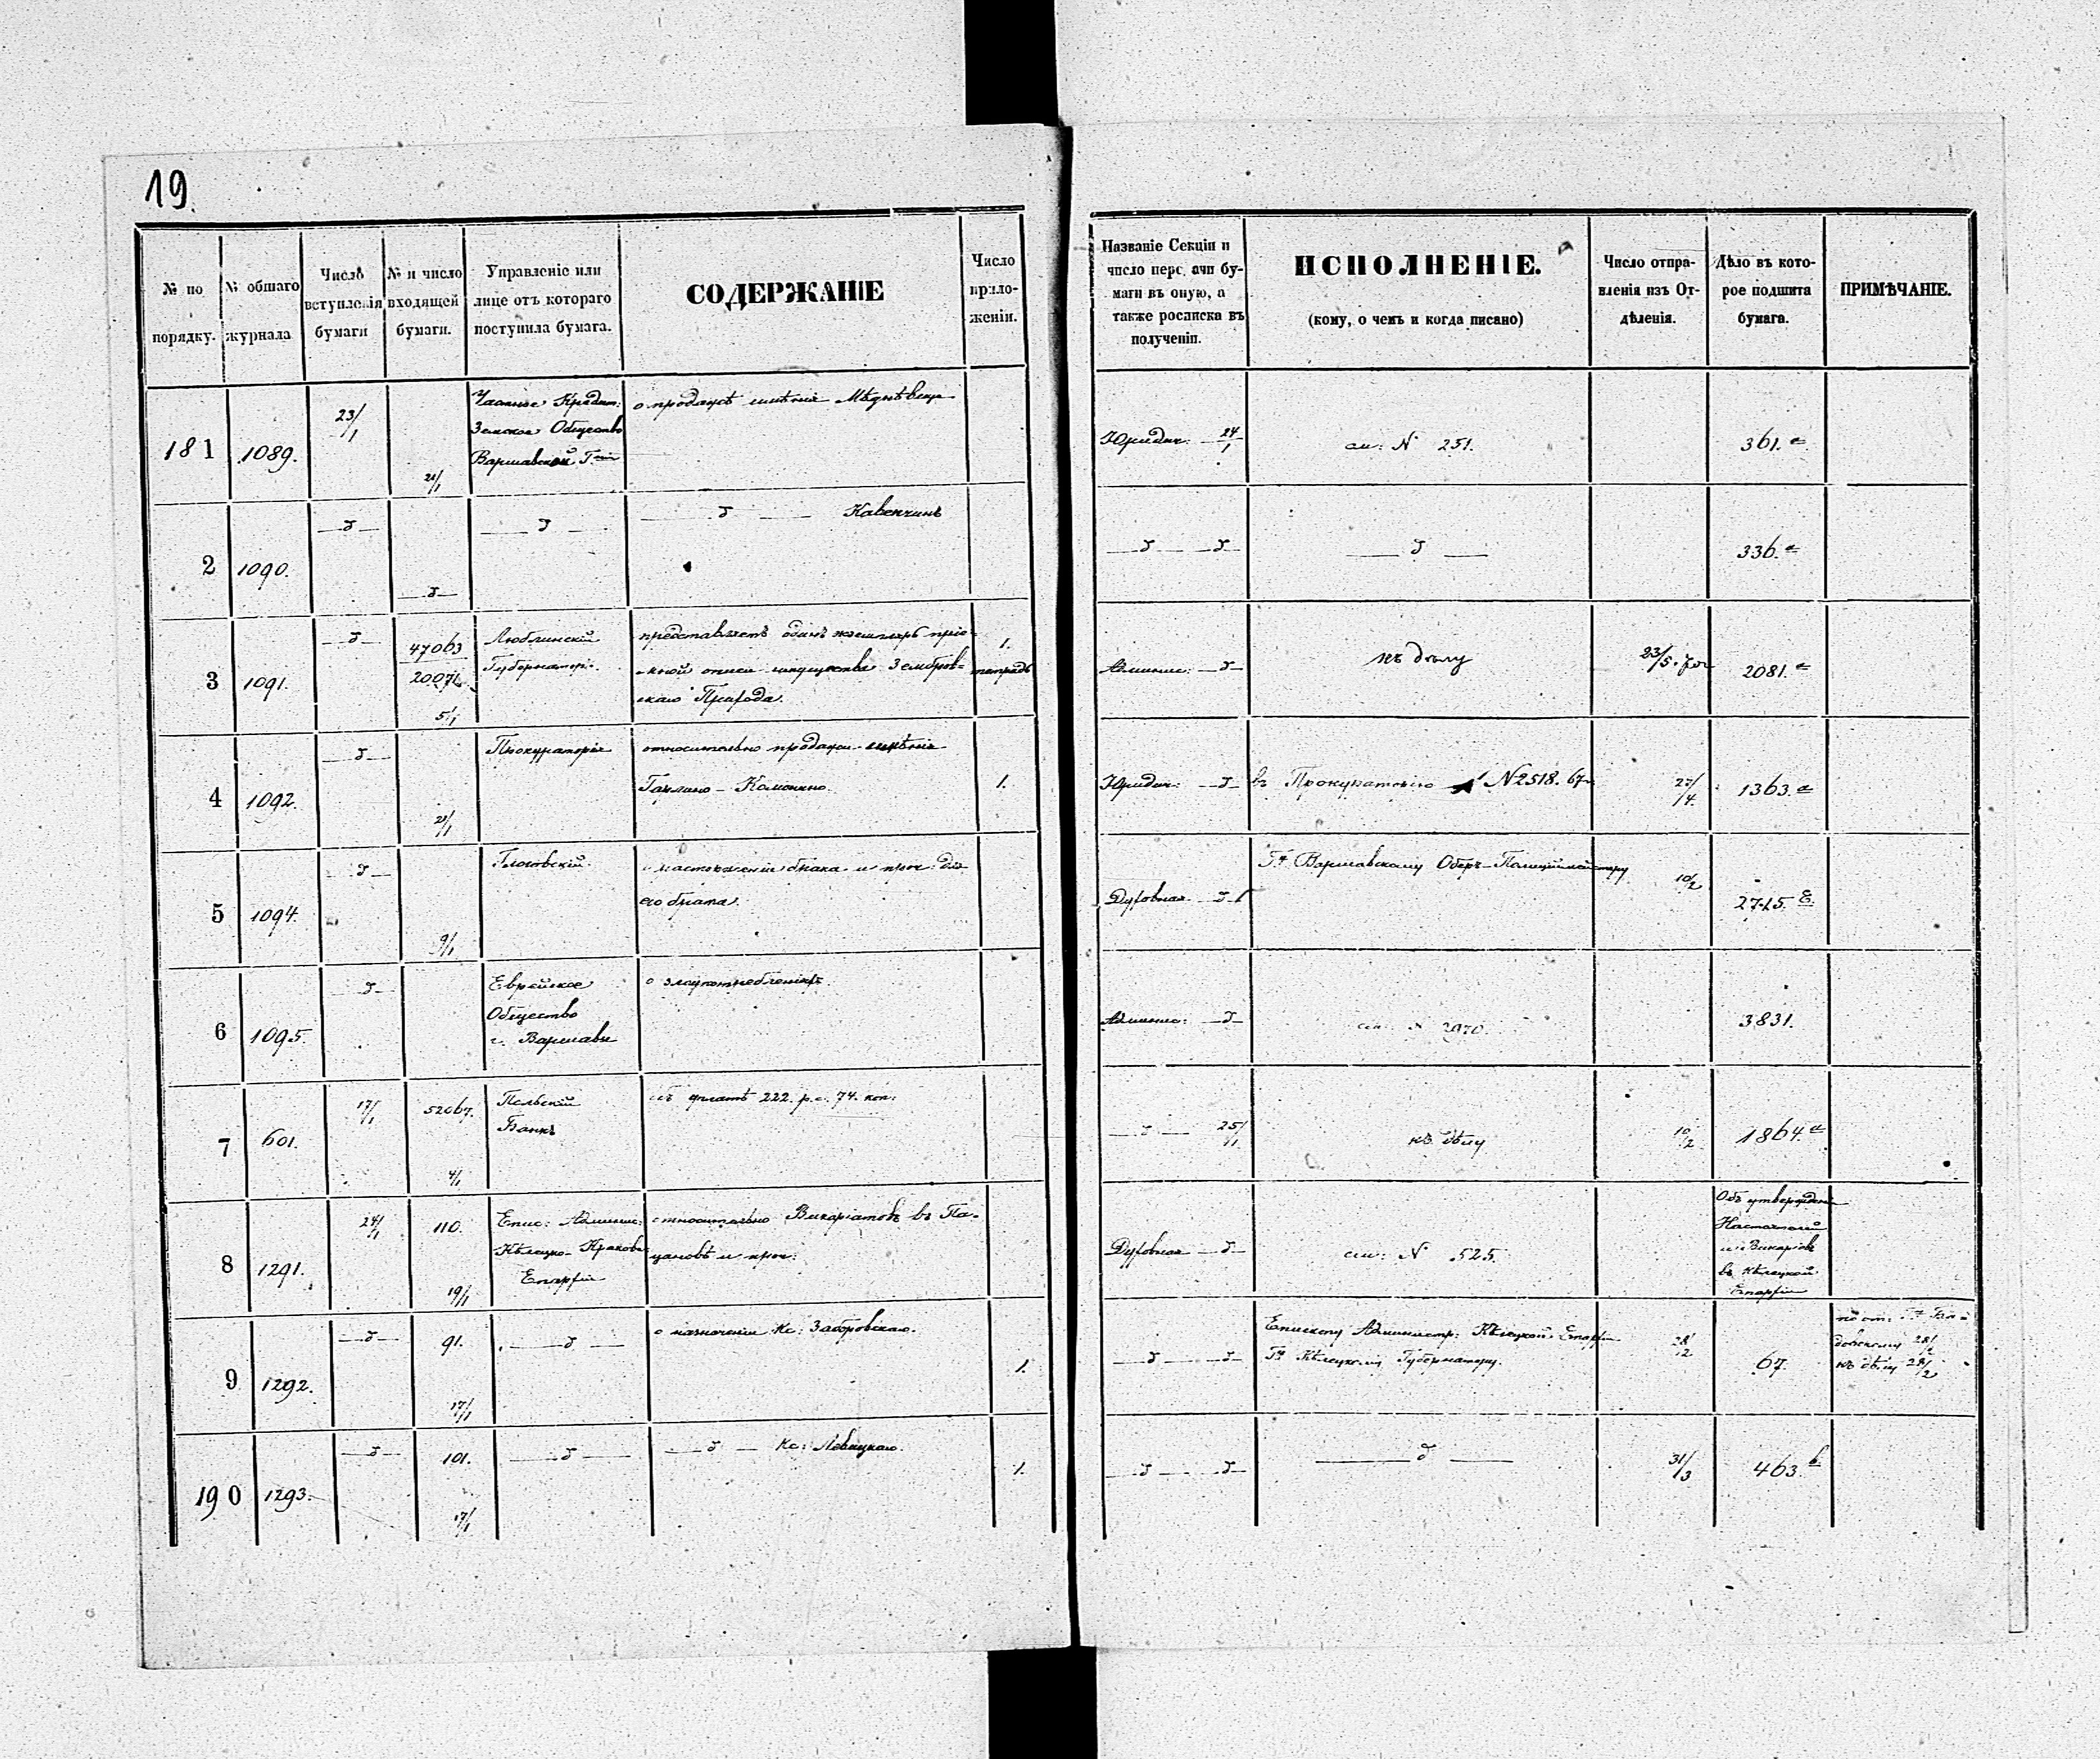 19.
№ по порядку.
№ общаго журнала
Числѣ вступленія бумаги
№ и число входящей бумаги.
Управленіе или лице отъ котораго поступила бумага.
СОДЕРЖАНІЕ
Число приложеніи.
Названіе Секціи и число передачи бумаги въ оную, а также росписка въ полученіи.
ИСПОЛНЕНІЕ.
(кому, о чемъ и когда писано)
Число отправленія изъ Отдѣленія.
Дѣло въ которое подшита бумага.
ПРИМѢЧАНІЕ.
181 1089. 23/1 21/1
Частное Кредит:
Земское Общество
Варшавской Г.
о продажѣ имѣнія
Юридич: 24/1 см: № 251. 361.а
2 1090. д д д д Кавенчинъ
д д д 336.а
3 1091. д 47063
20071 5/1
Люблинскій
Губернаторъ.
представляетъ одинъ экземпляръ пріе-
мной описи имущества
скаго Прихода.
1.
тетрадь
Админис: д къ дѣлу 23/5 2081.а
4 1092. д 21/1 Прокураторія
относительно продажи имѣнія
1.
Юридич: д въ Прокураторію № 2518. 67 27/4. 1363.а
5 1094. д 9/1
о расторженіи брака и проч: для
его брата.
Духовная д Гну Варшавскому Оберъ-Полицiймейстеру 10/2 2715.
6 1095. д
Еврейское
Общество
г. Варшавы
о злоупотребленіяхъ.
Админис: д см: № 2970. 3831.
7 601. 17/1 52067. 4/1
Польскій
Банкъ
объ уплатѣ 222. р.с. 74. коп:
д 25/1 къ дѣлу 10/2 1864.а
8 1291. 24/1 110. 19/1
Епис: Админис:
Кѣлецко-Краков:
Епархіи
относительно Викаріатовъ въ Па-
цановѣ и проч:
Духовная д см: № 525.
Объ утвержденіи
Настоятелей
и Викаріевъ
въ Кѣлецкой
Епархіи
9 1292. д 91. 17/1 д
о назначеніи Кс:
1.
д д
Епископу Администр: Кѣлецкой Епархіи
Гну Кѣлецкому Губернатору.
28/2 67.
къ дѣлу 28/2
190 1293. д 101. 17/1 д д Кс: Левицкаго.
1.
д д д 31/3 463.b